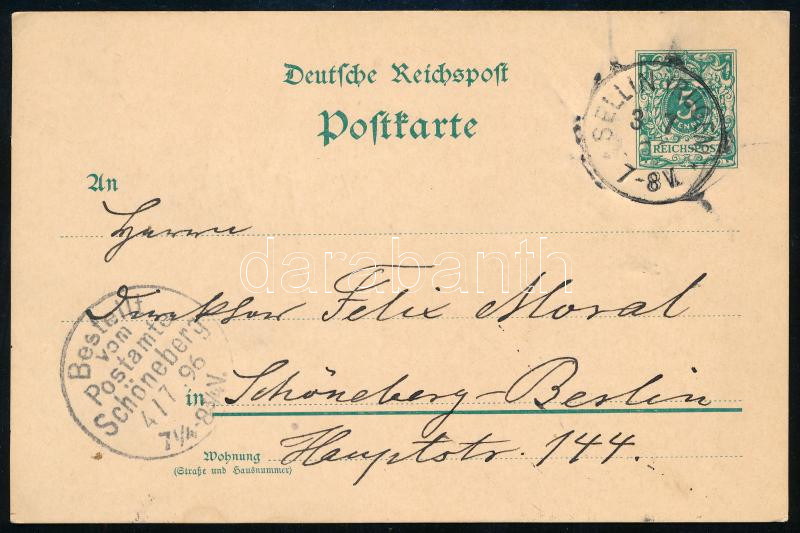 Deutsche Reichspost
Postkarte
SELLIN (RÜGEN)
3 7
7-8V.
5
PFENNIG
REICHSPOST
An
Herrn
Direktor Felix Moral
in Schöneberg-Berlin
Wohnung Hauptstr. 144.
(Straße und Hausnummer)
Bestellt
vom
Postamte
Schöneberg
4/7 96
7¼-8¾V.
darabanth